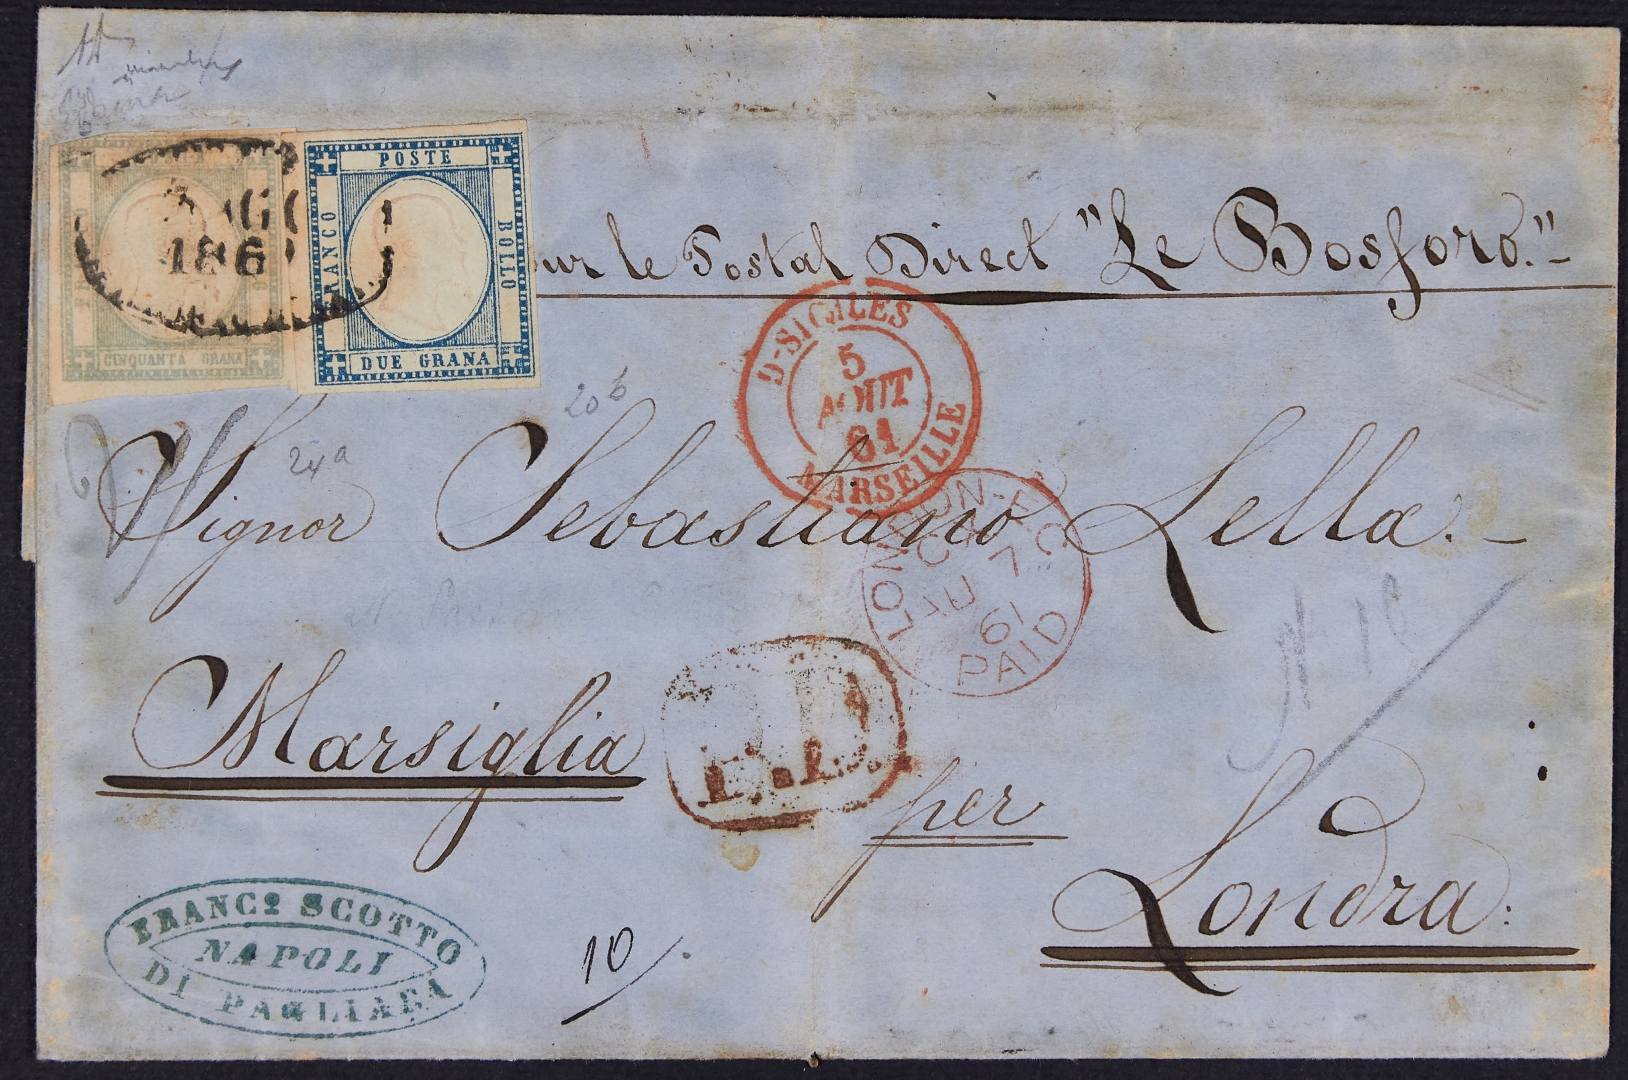 POSTE
FRANCO
BOLLO
DUE GRANA
CINQUANTA GRANA
AGO
186
ur le Postal Direct "Le Bosforo."
2-SICILES
5
AOUT
61
MARSEILLE
20b
24a
Signor Sebastiano Lella.
LONDON-EC
CA
AU 7
61
PAID
Marsiglia
P.D.
per
Londra:
FRANCo SCOTTO
NAPOLI
DI PAGLIARA
10